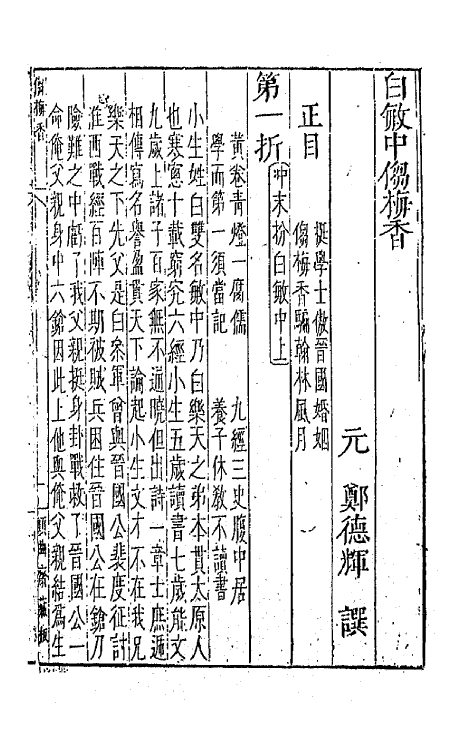 白敏中㑳梅香
元　鄭德輝　譔
正目
挺學士傲晉國婚姻
㑳梅香騙翰林風月
第一折
冲末扮白敏中上
黃卷青燈一腐儒　九經三史腹中居
學而第一須當記　養子休教不讀書
小生姓白雙名敏中乃白樂天之弟本貫太原人
也寒窻十載窮究六經小生五歲讀書七歲能文
九歲上諸子百家無不通曉但出詩一章士庶遞
相傳寫名譽盈貫天下論起小生文才不在我兄
樂天之下先父是白叅軍曾與晉國公裴度征討
淮西戰經百陣不期被賊兵困住晉國公在鎗刀
險難之中虧了我父親挺身卦戰救了晉國公一
命俺父親身中六鎗因此上他與俺父親結爲生
㑳梅香
一